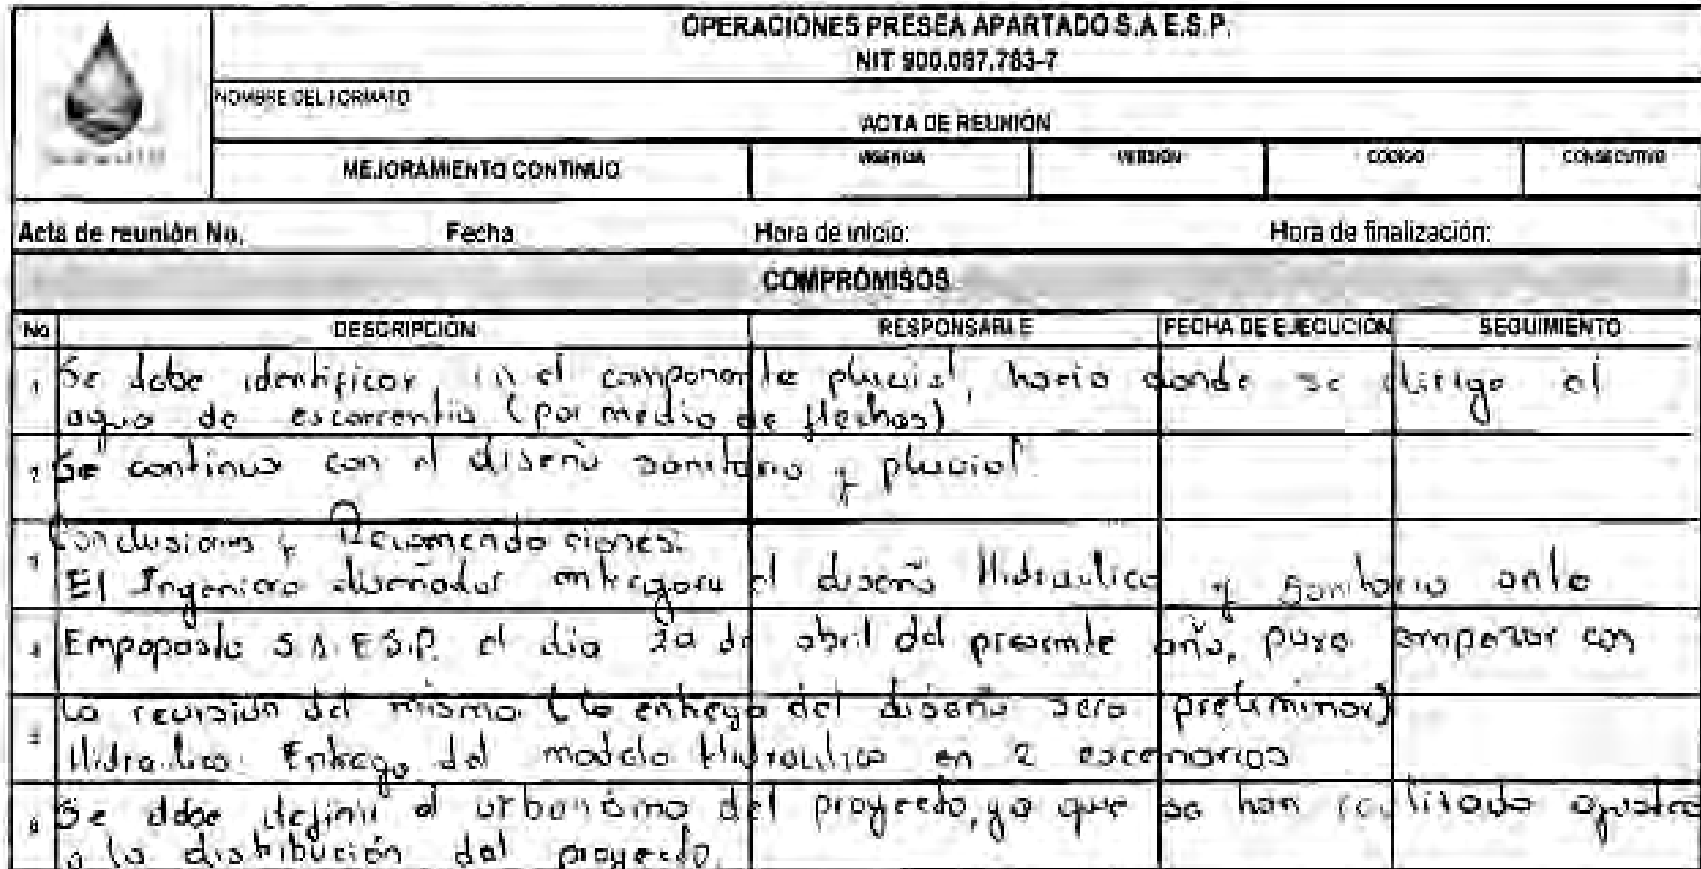 OPERACIONES PRESEA APARTADO S.A E.S.P.
NIT 900.087.783-7
NOMBRE DEL FORMATO
ACTA DE REUNIÓN
MEJORAMIENTO CONTINUO
VIGENCIA
VERSIÓN
CODIGO
CONSECUTIVO
Acta de reunión No. Fecha Hora de inicio: Hora de finalización:
COMPROMISOS
No DESCRIPCIÓN RESPONSABLE FECHA DE EJECUCIÓN SEGUIMIENTO
1 Se debe identificar, en el componente pluvial, hacia donde se dirige el
agua de escorrentia (por medio de flechas)
2 Se continua con el diseño sanitario y pluvial
3 Conclusiones y Recomendaciones:
El Ingeniero diseñador entregara el diseño Hidraulico y Sanitario ante
4 S.A. E.S.P. el dia de abril del presente año, para empezar con
5 La revisión del mismo. (la entrega del diseño sera preliminar)
Hidraulico: Entrega del modelo Hidraulico en 2 escenarios
6 Se debe definir el urbanismo del proyecto, ya que se han realizado ajustes
a la distribución del proyecto.